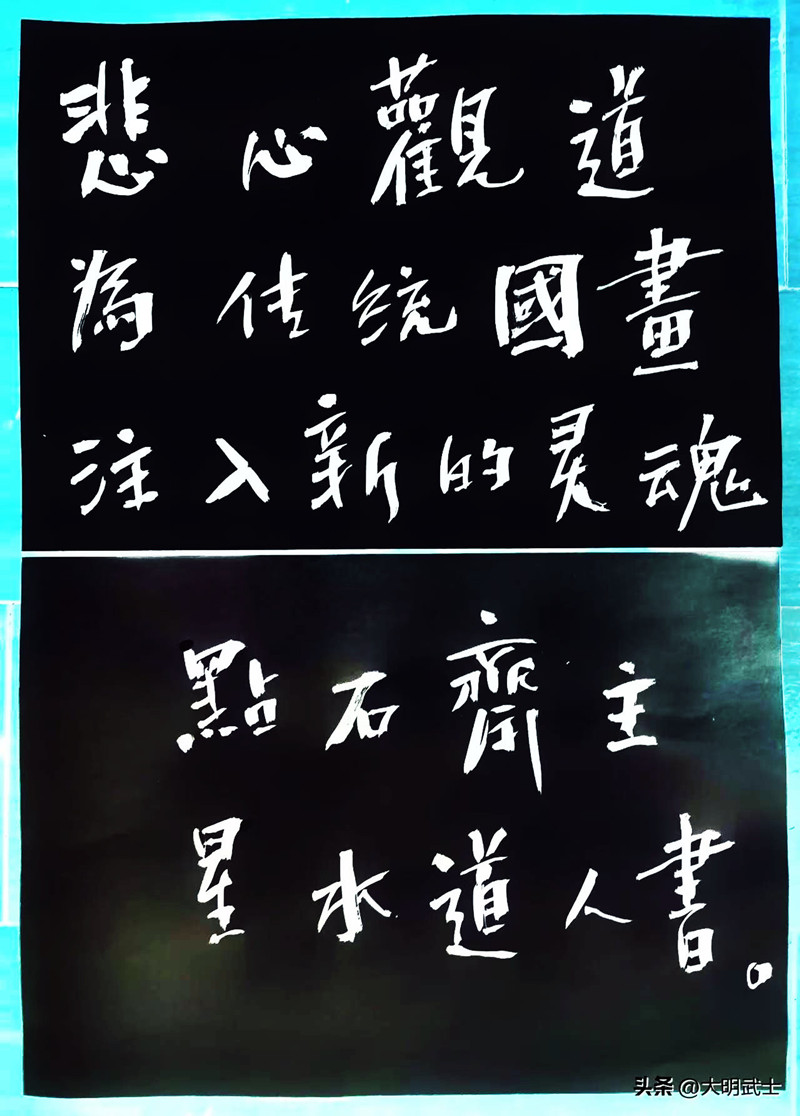 悲心觀道
為传统國畫
注入新的灵魂
點石齋主
星水道人書。
头条 @大明武士